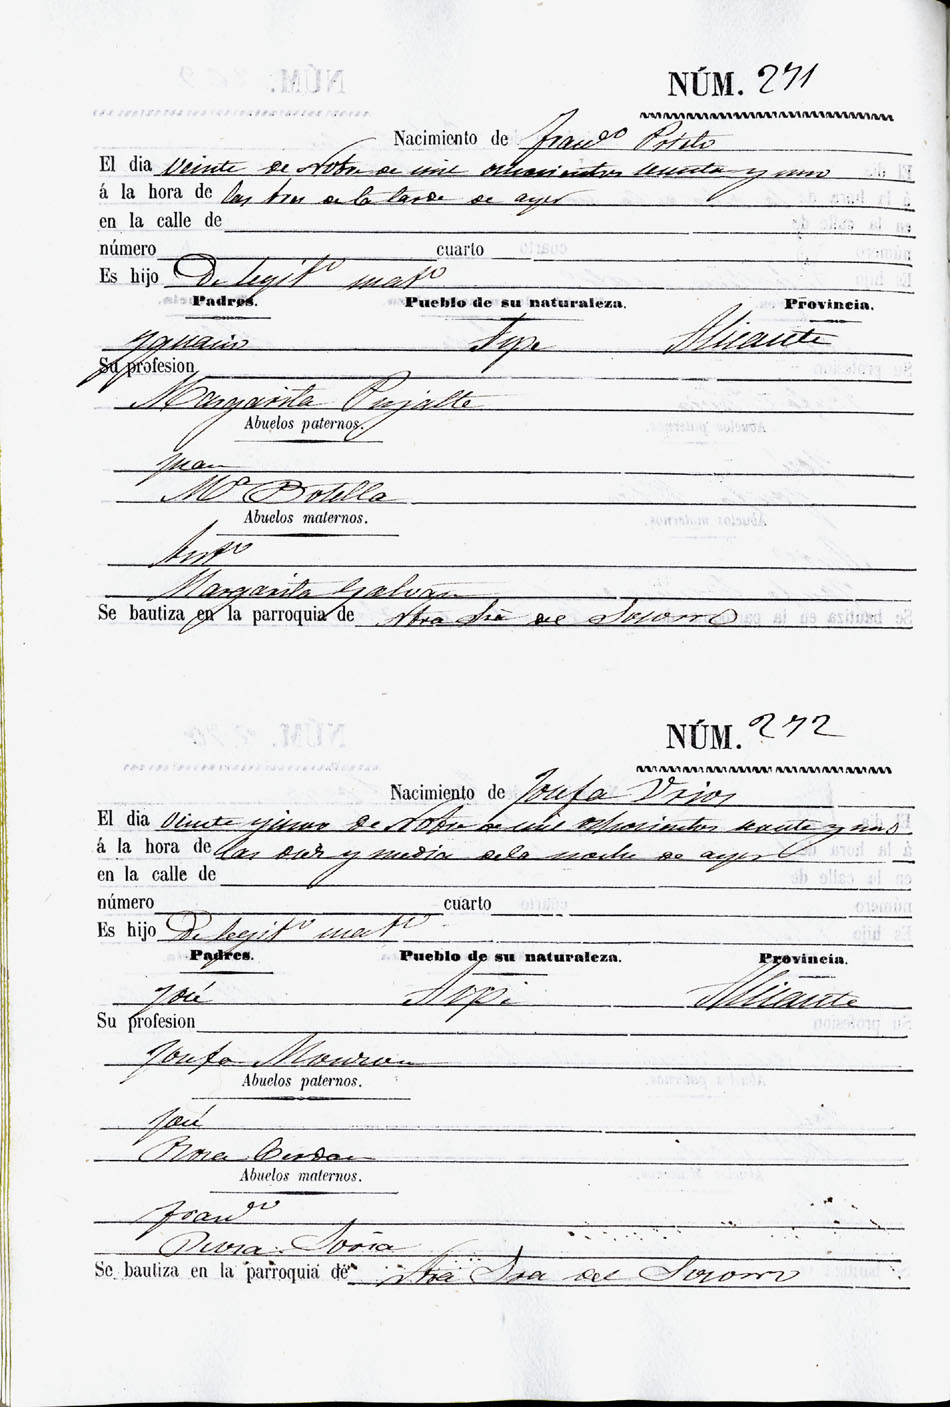 NÚM. 271
Nacimiento de Franco Prieto
El dia veinte de Nobre de mil ochocientos sesenta y uno
á la hora de las tres de la tarde de ayer
en la calle de
número cuarto
Es hijo De legit.o mat.o
Padres. Pueblo de su naturaleza. Provincia.
Ygnacio Aspe Alicante
Su profesion
Margarita Pujalte
Abuelos paternos.
Juan
Ma Botella
Abuelos maternos.
Anto
Margarita Galvañ
Se bautiza en la parroquia de Ntra Sra del Socorro
NÚM. 272
Nacimiento de Josefa
El dia Veinte y uno de Nobre de mil ochocientos sesenta y uno
á la hora de las diez y media de la noche de ayer
en la calle de
número cuarto
Es hijo De legit.o mat.o
Padres. Pueblo de su naturaleza. Provincia.
José Aspe Alicante
Su profesion
Josefa
Abuelos paternos.
José
Rosa Cerdan
Abuelos maternos.
Franco
Soria
Se bautiza en la parroquia de Ntra Sra del Socorro